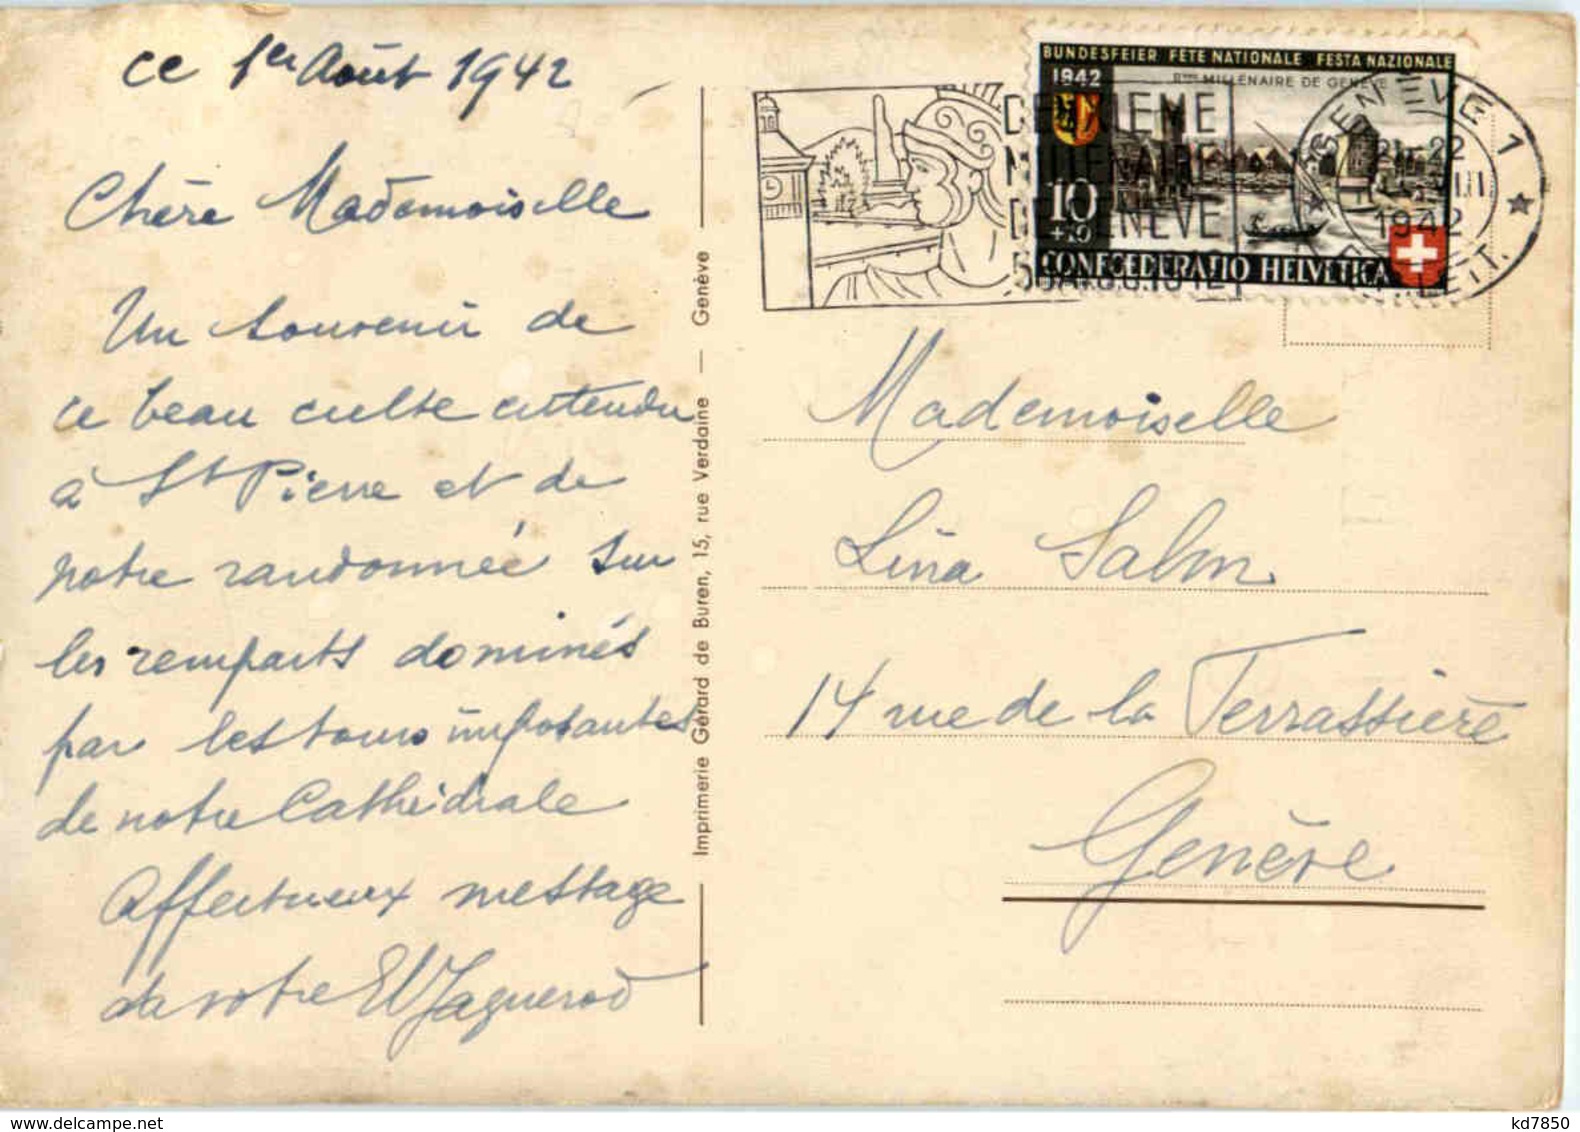 ce 1er Août 1942
Chère Mademoiselle
Un souvenir de
ce beau culte entendu
à St Pierre et de
notre randonnée sur
les remparts dominés
par les tours imposantes
de notre Cathédrale
Affectueux message
de votre EWJaquerod
Imprimerie Gérard de Buren, 15, rue Verdaine — Genève
BUNDESFEIER FÊTE NATIONALE FESTA NAZIONALE
1942
IIME MILLENAIRE DE GENEVE
10
+10
CONFOEDERATIO HELVETICA
DEUXIEME
MILLENAIRE
DE GENEVE
GENÈVE 1
22
VIII
1942
Mademoiselle
Lina Salm
14 rue de la Terrassière
Genève
kd7850